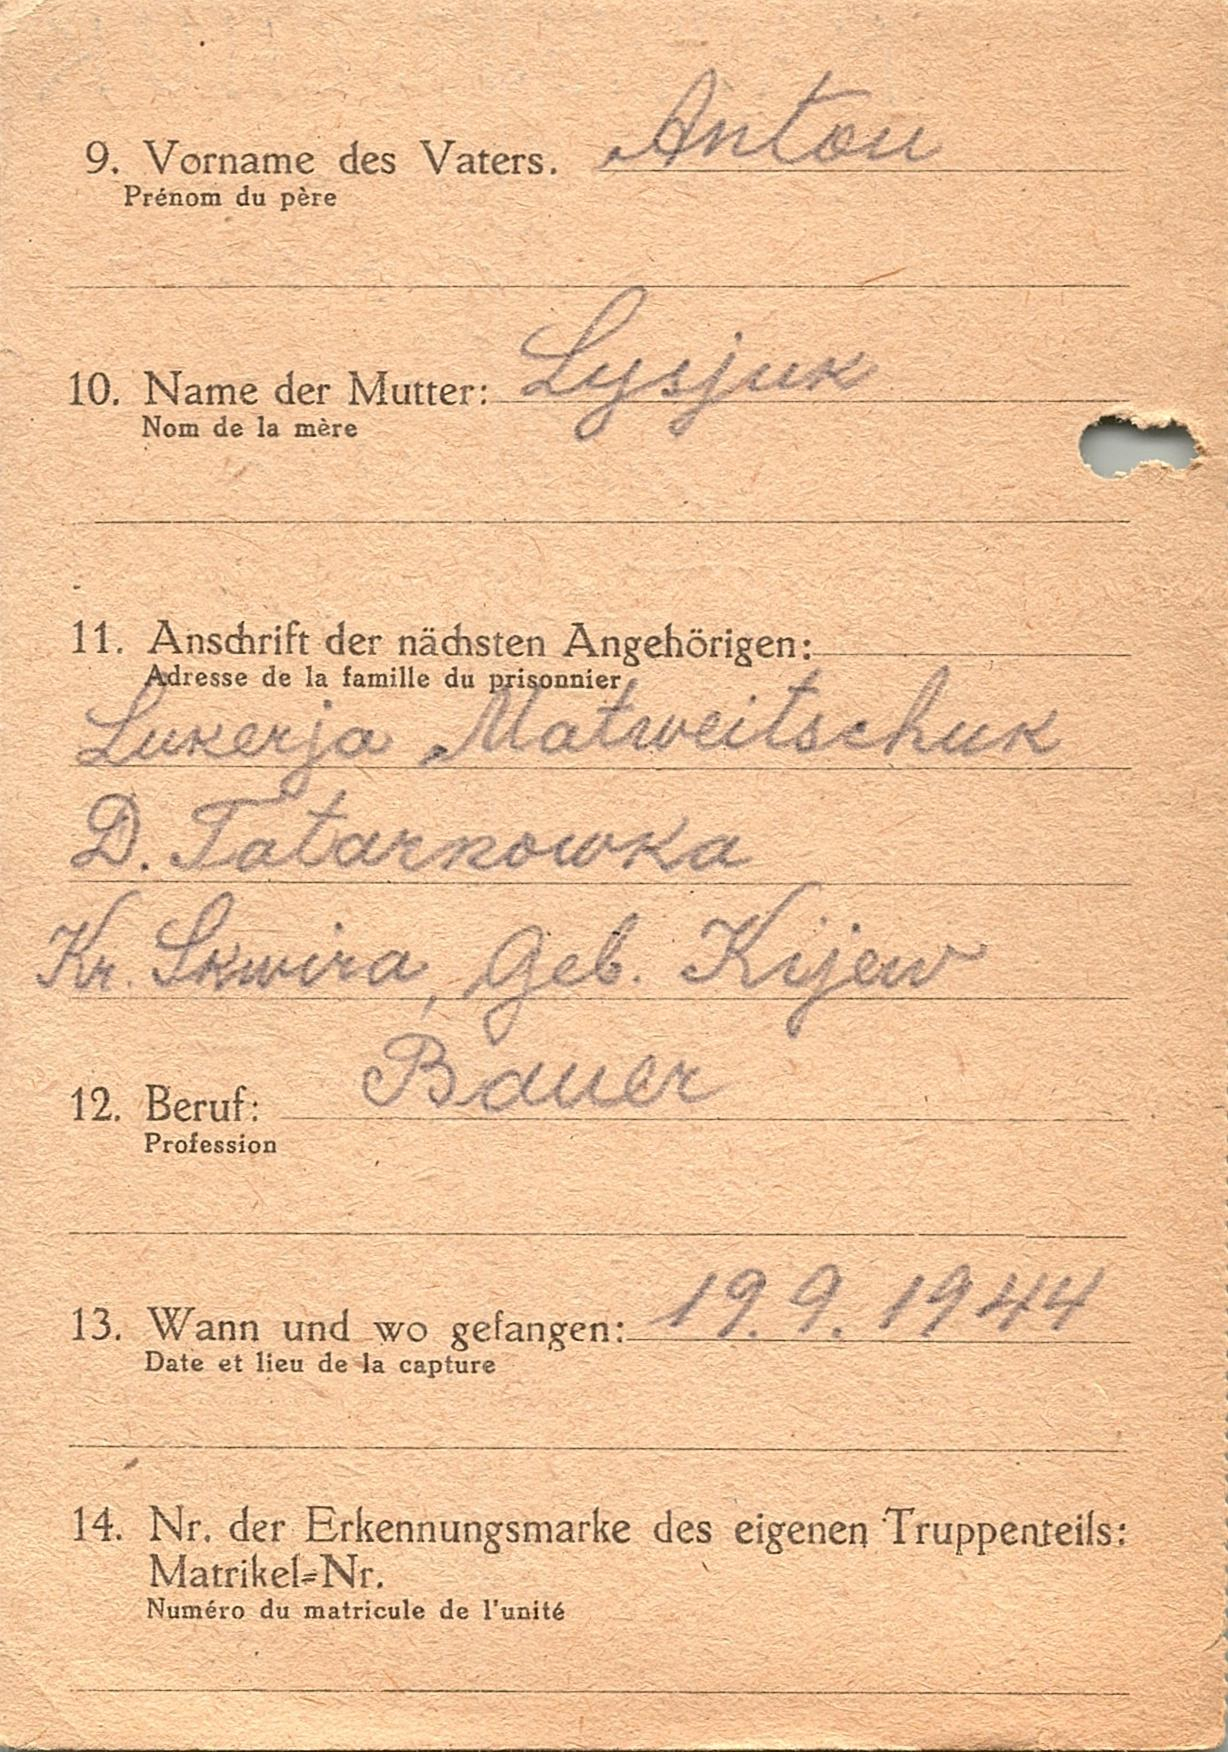 9. Vorname des Vaters. Anton
Prénom du père
10. Name der Mutter: Lysjuk
Nom de la mère
11. Anschrift der nächsten Angehörigen:
Adresse de la famille du prisonnier
Lukerja Matweitschuk
D. Tatarnowka
Kr. Skwira, Geb. Kijew
12. Beruf: Bauer
Profession
13. Wann und wo gefangen: 19.9.1944
Date et lieu de la capture
14. Nr. der Erkennungsmarke des eigenen Truppenteils:
Matrikel=Nr.
Numéro du matricule de l'unité